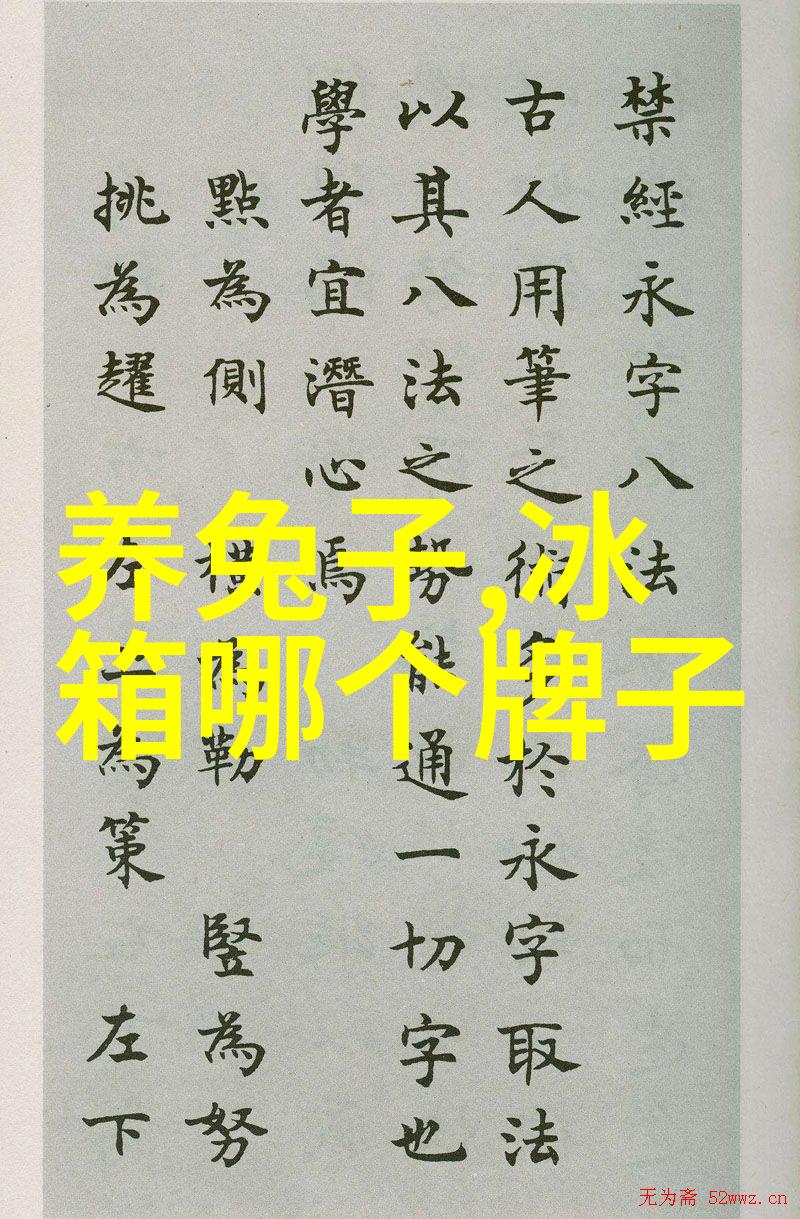 禁經永字八法
古人用筆之術多於永字取法
以其八法之勢能通一切字也
學者宜潛心焉
點為側 橫為勒 豎為努
挑為趯 左上為策 左下
养兔子,冰
箱哪个牌子
无为斋 52wwz.cn